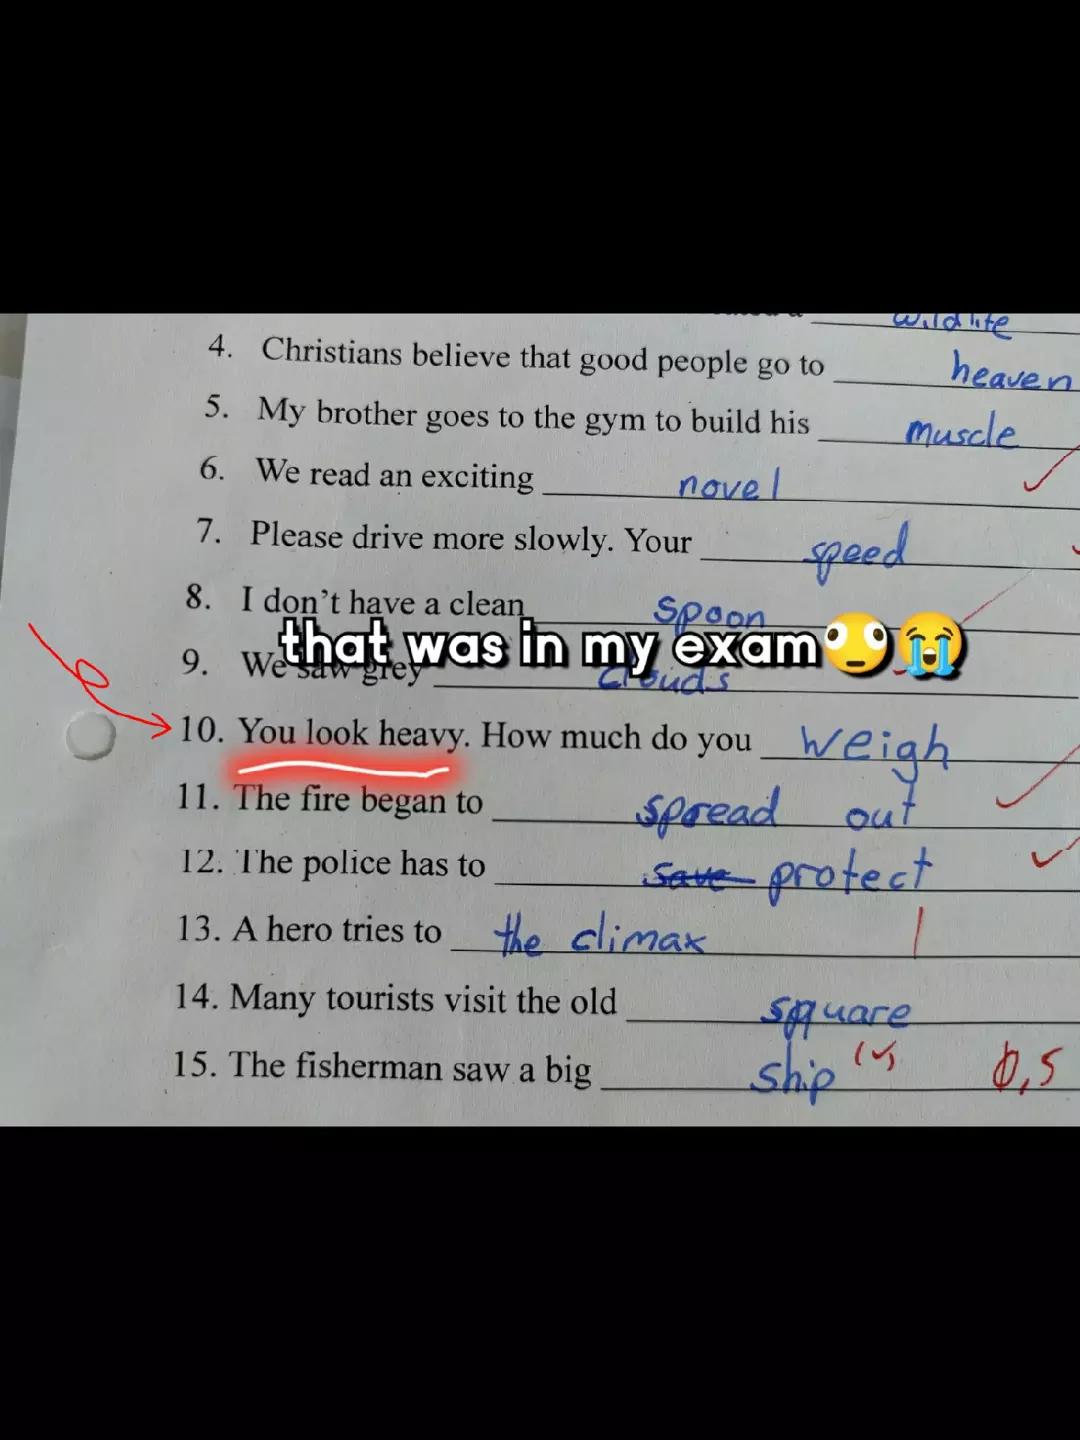 wildlife
4. Christians believe that good people go to heaven
5. My brother goes to the gym to build his muscle
6. We read an exciting novel
7. Please drive more slowly. Your speed
8. I don't have a clean spoon
that was in my exam🙄😭
9. We saw grey clouds
10. You look heavy. How much do you weigh
11. The fire began to spread out
12. The police has to save protect
13. A hero tries to the climax
14. Many tourists visit the old square
15. The fisherman saw a big ship (✓) 0,5